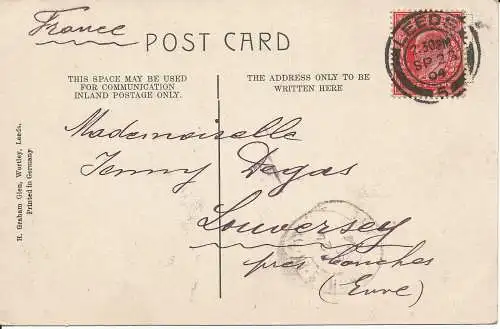 France
POST CARD
THIS SPACE MAY BE USED
FOR COMMUNICATION
INLAND POSTAGE ONLY.
THE ADDRESS ONLY TO BE
WRITTEN HERE
LEEDS
7.30PM
04
Mademoiselle
Jenny Degas
Louversey
près Conches
(Eure)
H. Graham Glen, Wortley, Leeds.
Printed in Germany